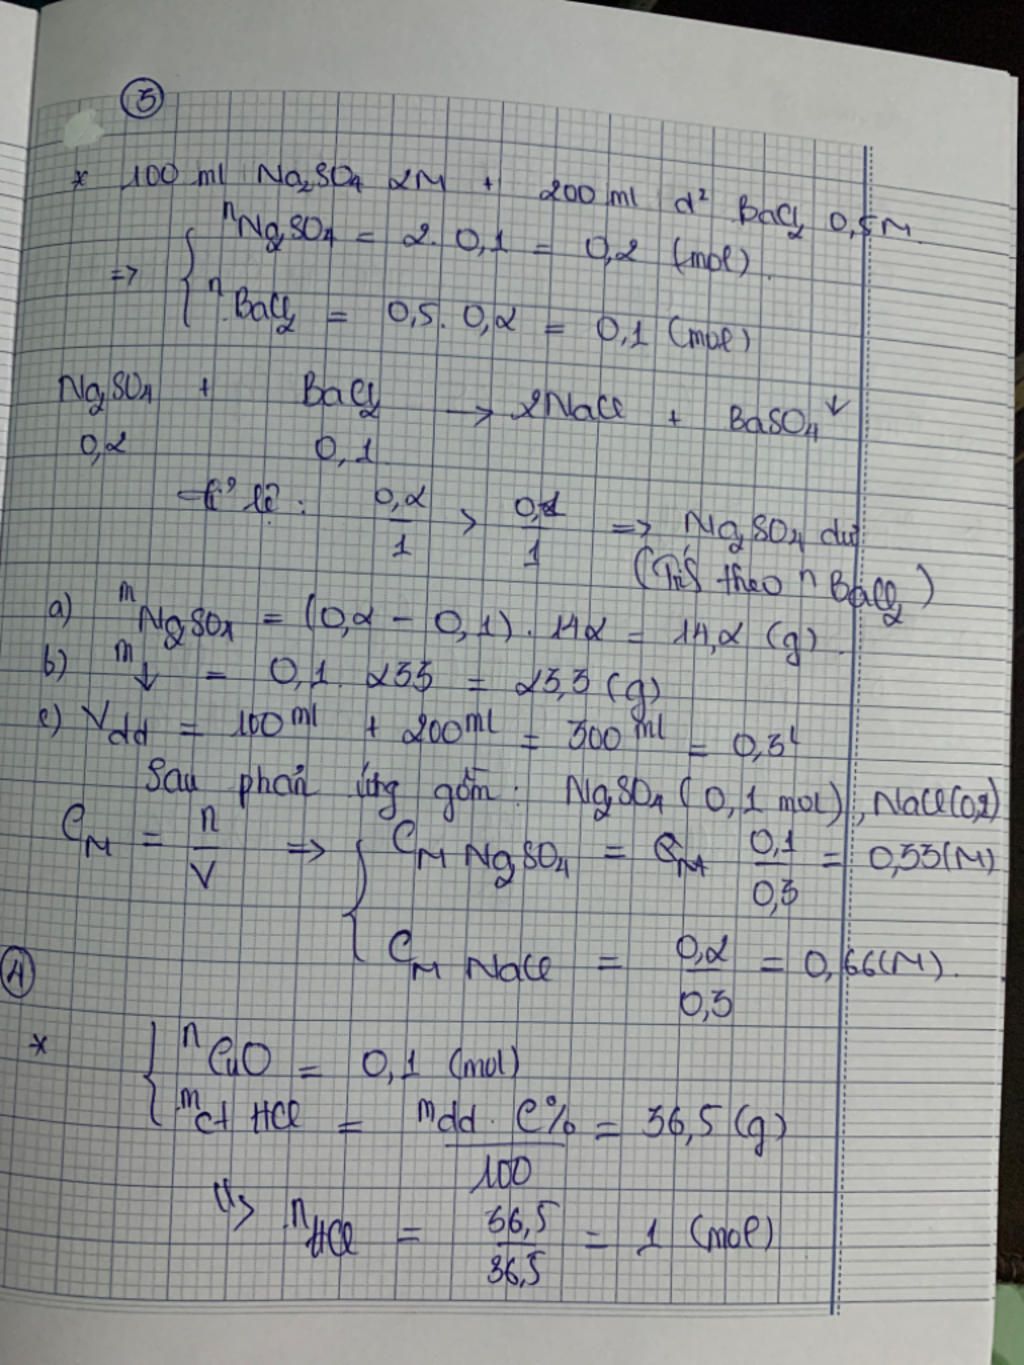 3
* 100 ml Na2SO4 2M + 200 ml d² BaCl2 0,5M
nNa2SO4 = 2. 0,1 = 0,2 (mol).
=> {
nBaCl2 = 0,5. 0,2 = 0,1 (mol)
Na2SO4 + BaCl2 → 2NaCl + BaSO4↓
0,2 0,1
Tỉ lệ : 0,2/1 > 0,1/1 => Na2SO4 dư
(Tís theo nBaCl2)
a) mNa2SO4 = (0,2 - 0,1). 142 = 14,2 (g).
b) m↓ = 0,1. 233 = 23,3 (g)
c) Vdd = 100ml + 200ml = 300ml = 0,3l
Sau phản ứng gồm : Na2SO4 (0,1 mol), NaCl(0,2)
CM = n/V => { CM Na2SO4 = CM 0,1/0,3 = 0,33(M)
CM NaCl = 0,2/0,3 = 0,66(M).
4
* { nCuO = 0,1 (mol)
mct HCl = mdd. C%/100 = 36,5 (g)
=> nHCl = 36,5/36,5 = 1 (mol)